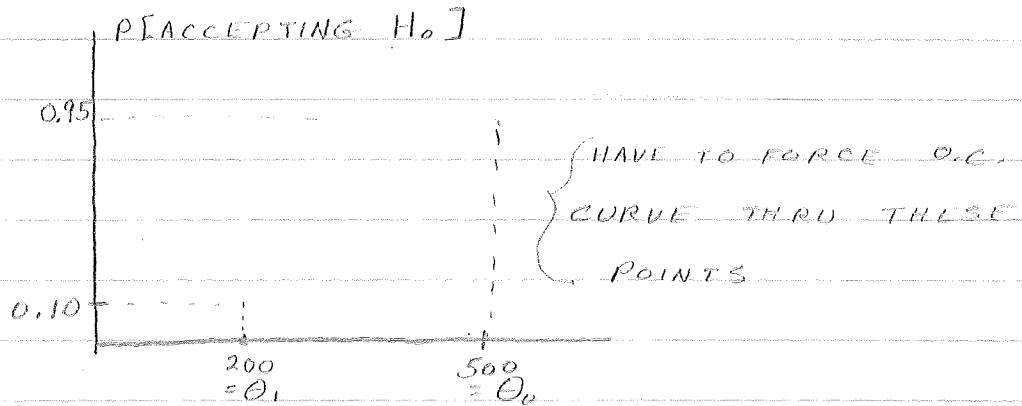 P[ACCEPTING H₀]
0.95
HAVE TO FORCE O.C.
CURVE THRU THESE
POINTS
0.10
200 500
= θ₁ = θ₀